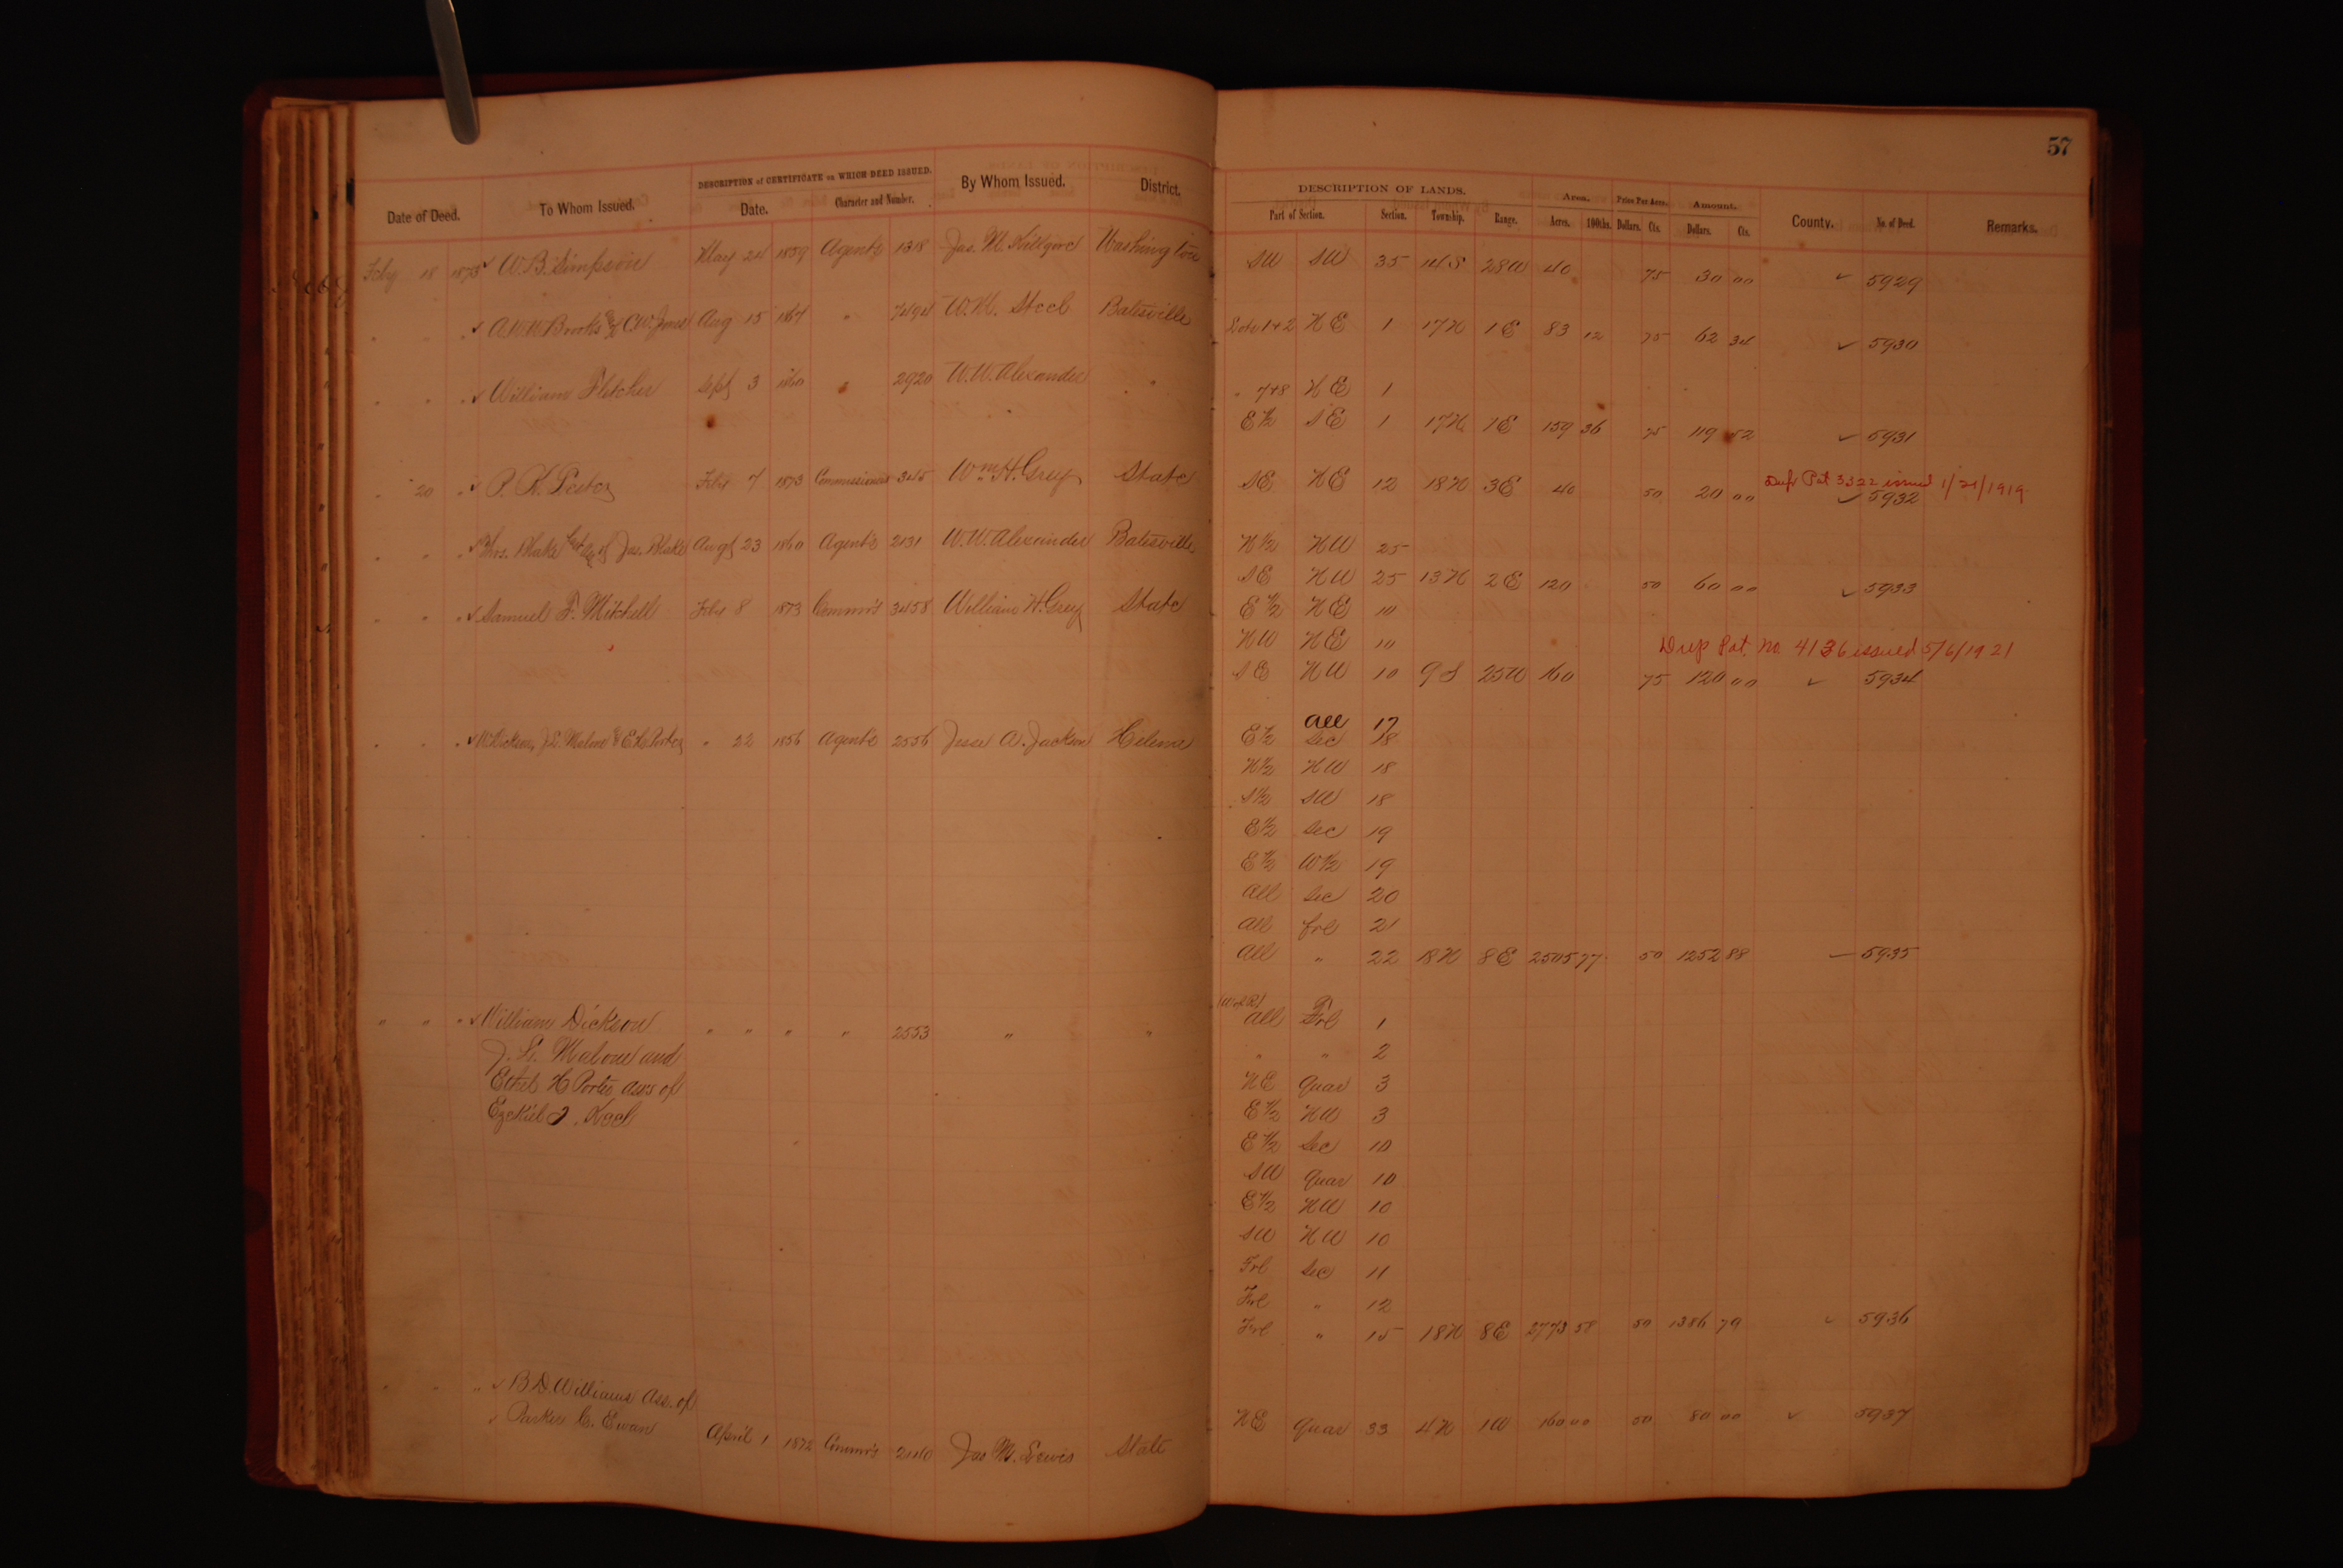 57
DESCRIPTION of CERTIFICATE on WHICH DEED ISSUED. By Whom Issued. District. DESCRIPTION OF LANDS. Area. Price Per Acre. Amount.
Date of Deed. To Whom Issued. Date. Character and Number. Part of Section. Section. Township. Range. Acres. 100ths. Dollars. Cts. Dollars. Cts. County. No. of Deed. Remarks.
Feby 18 1873 ✓ W. B. Simpson May 24 1859 Agents 1318 Jas. M. Killgore Washington SW SW 35 14S 28W 40 75 30 00 ✓ 5929
" " " ✓ A.W.W. Brooks of C.W. Jones Aug 15 1867 " 7494 W. M. Steel Batesville Lots 1+2 NE 1 17N 1E 83 12 75 62 34 ✓ 5930
" " " ✓ William Fletcher Sept 3 1860 " 2920 W. W. Alexander " " 7+8 NE 1
E½ SE 1 17N 1E 159 36 75 119 52 ✓ 5931
Dup Pat 3322 issued 1/21/1919
" 20 " ✓ P. K. Lester Feby 7 1873 Commissioners 345 Wm H. Grey State SE NE 12 18N 3E 40 50 20 00 ✓ 5932
" " " ✓ Thos. Blake of Jas. Blake Augt 23 1860 Agents 2131 W. W. Alexander Batesville N½ NW 25
SE NW 25 13N 2E 120 50 60 00 ✓ 5933
" " " ✓ Samuel F. Mitchell Feby 8 1873 Commr's 3458 William H. Grey State E½ NE 10
NW NE 10
Dup Pat. No 4136 issued 5/6/1921
SE NW 10 9S 25W 160 75 120 00 ✓ 5934
All 17
" " " ✓ W. Dickson, J. L. Malone & E. H. Porter " 22 1856 Agents 2556 Jesse A. Jackson Helena E½ Sec 18
N½ NW 18
S½ SW 18
E½ Sec 19
E½ W½ 19
All Sec 20
All frl 21
All " 22 18N 8E 2505 77 50 1252 88 — 5935
(W of R)
" " " ✓ William Dickson " " " " 2553 " " All Frl 1
J. L. Malone and " " 2
Ethel H Porter ass of NE quar 3
Ezekiel J. E½ NW 3
E½ Sec 10
SW quar 10
E½ NW 10
SW NW 10
Frl Sec 11
Frl " 12
Frl " 15 18N 8E 2773 58 50 1386 79 ✓ 5936
" " " ✓ B. D. Williams Ass. of
✓ Parker C. Ewan April 1 1872 Commr's 2140 Jas M. Lewis State NE quar 33 4N 1W 160 00 50 80 00 ✓ 5937